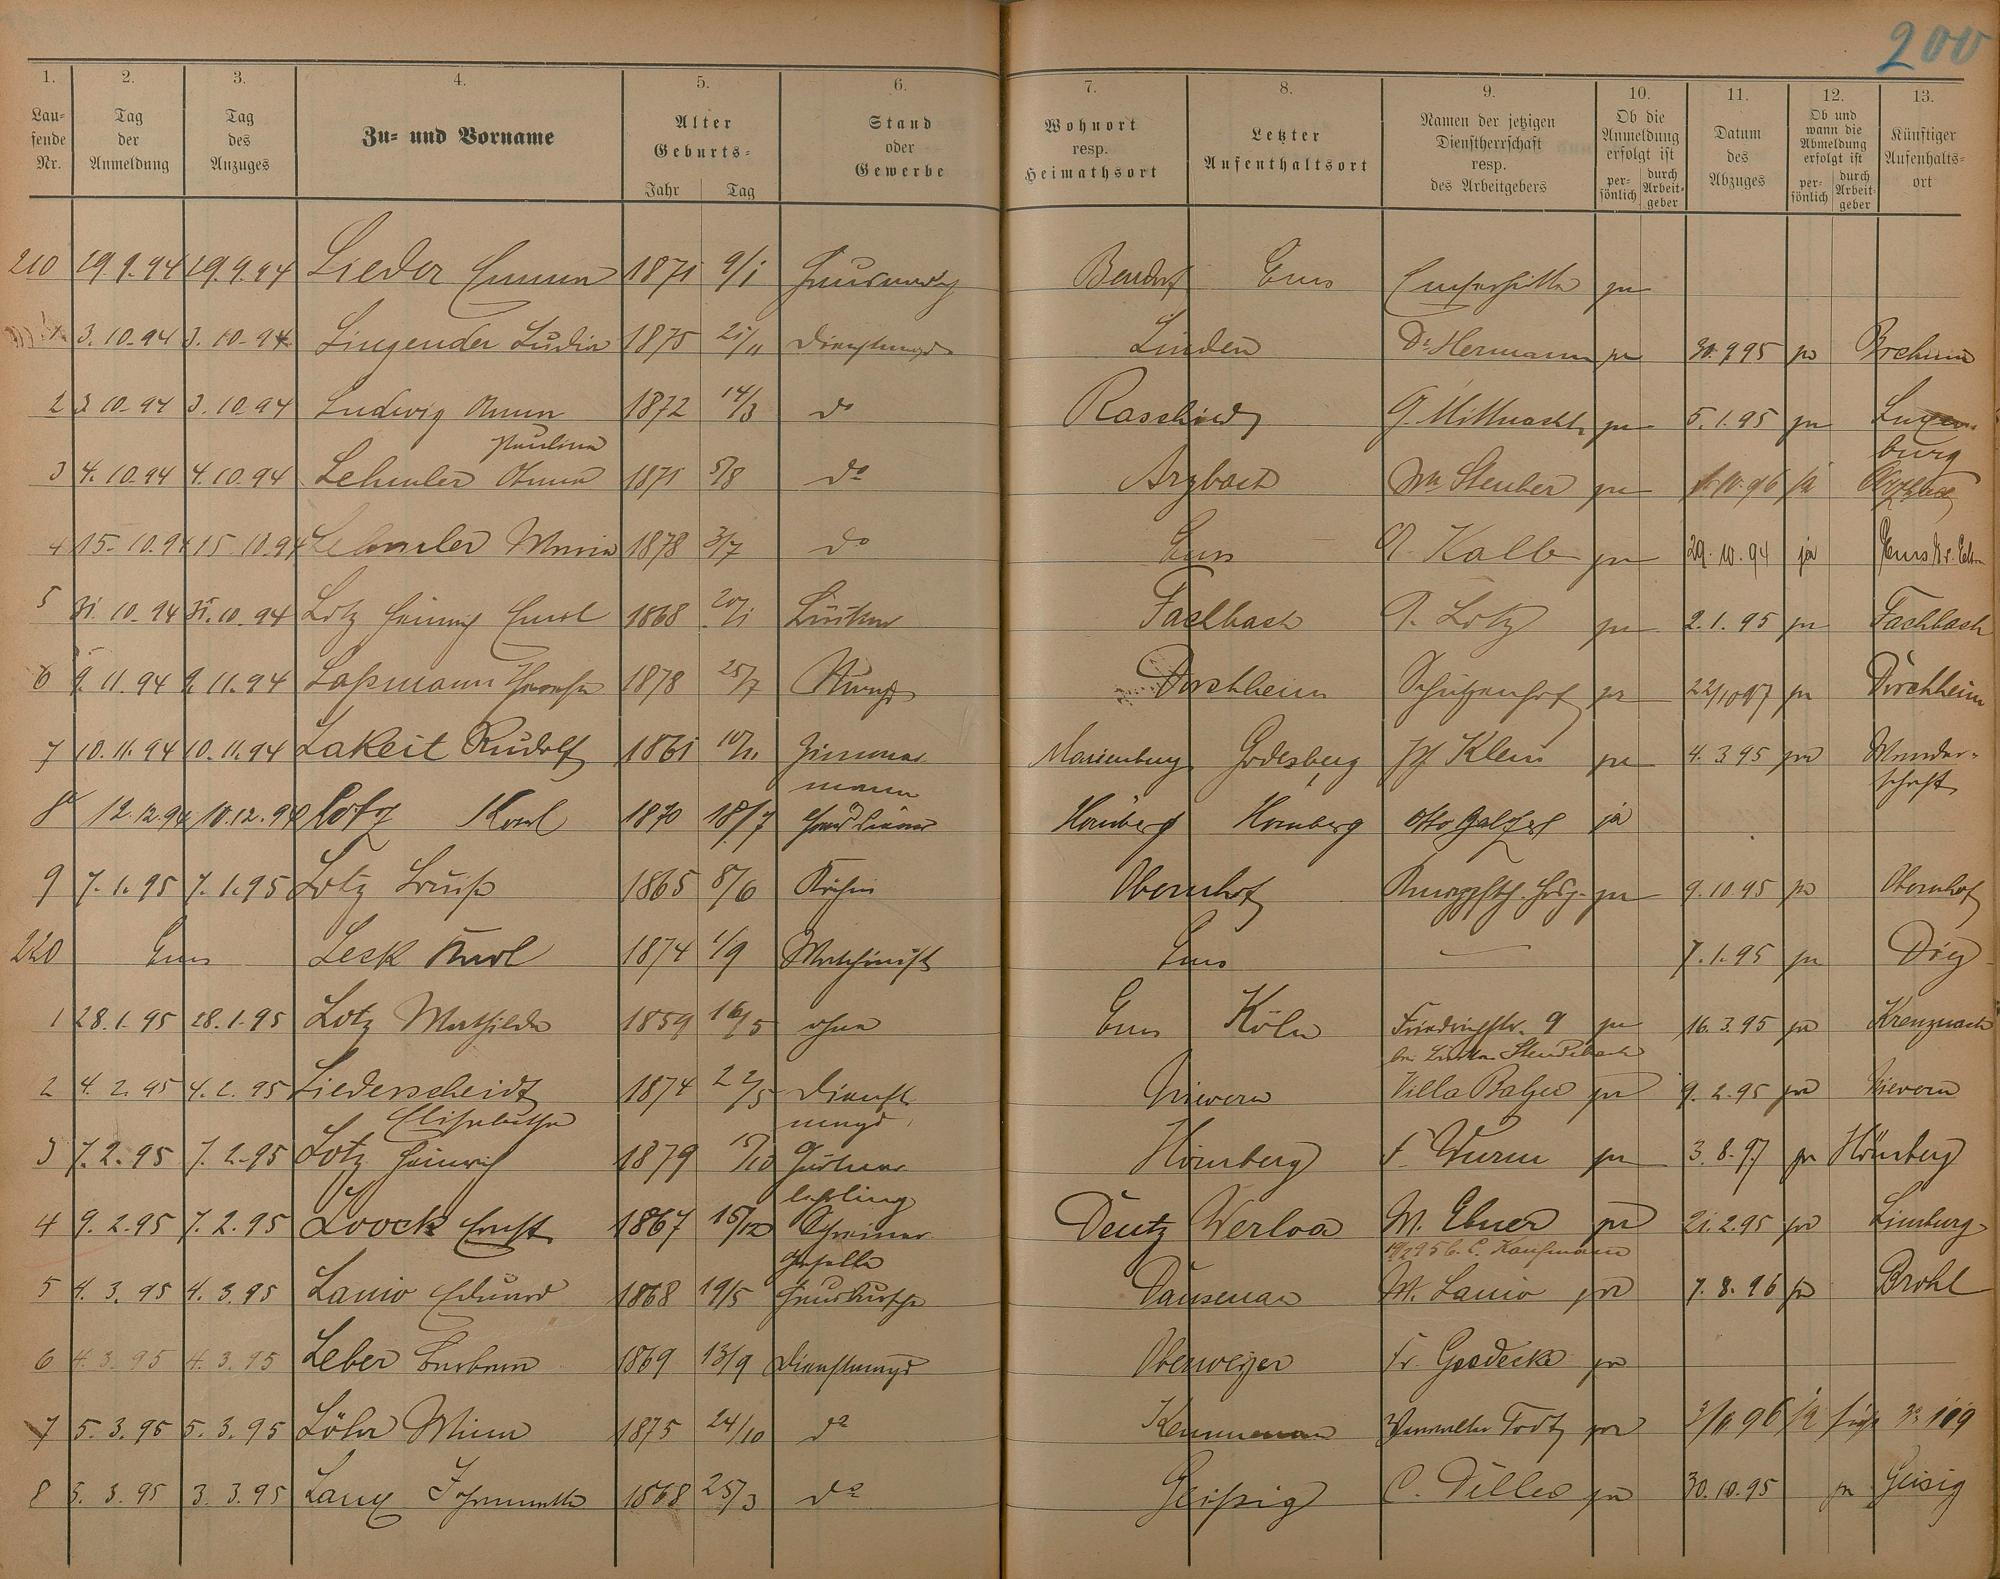 200
1. 2. 3. 4. 5. 6. 7. 8. 9. 10. 11. 12. 13.
Laufende Nr. Tag der Anmeldung Tag des Anzuges Zu- und Vorname Alter Geburts- Jahr Tag Stand oder Gewerbe Wohnort resp. Heimathsort Letzter Aufenthaltsort Namen der jetzigen Dienstherrschaft resp. des Arbeitgebers Ob die Anmeldung erfolgt ist persönlich durch Arbeitgeber Datum des Abzuges Ob und wann die Abmeldung erfolgt ist persönlich durch Arbeitgeber Künftiger Aufenhalts-ort
210 29.9.94 29.9.94 Lieder Emma 1871 9/1 Hausmädch Bendorf Ems Emserhütte ja
1 3.10.94 3.10.94 Lingender Ludia 1875 21/11 Dienstmagd Linden Dr Hermann ja 30.9.95 ja Bochum
2 3.10.94 3.10.94 Ludwig Anna 1872 14/3 do G. Mittnacht ja 5.1.95 ja Luxem-
burg
Paulina
3 4.10.94 4.10.94 Lehmler Anna 1871 5/8 do Arzbach Wm Steuber ja 1.10.96 ja Arzbach
4 15.10.94 15.10.94 Lehmler Maria 1878 3/7 do Ems A. Kalb ja 29.10.94 ja Ems
5 31.10.94 31.10.94 Lotz Heinrich Emil 1868 20/1 Bäcker Fachbach A. Lotz ja 2.1.95 ja Fachbach
6 9.11.94 9.11.94 Laßmann Theresia 1878 25/7 Magd Dörchheim Schützenhof ja 22/10 97 ja Dörchheim
7 10.11.94 10.11.94 Lakeit Rudolf 1861 10/11 Zimmer- Marienburg Godesberg Jos Klein ja 4.3.95 ja Wander-
mann schaft
8 12.12.94 10.12.94 Lotz Karl 1870 18/7 Hausdiener Hömberg Homberg Otto Balzer ja
9 7.1.95 7.1.95 Lotz Louise 1865 8/6 Köchin Obernhof ja 9.10.95 ja Obernhof
220 Ems Lesk Karl 1874 1/9 Maschinist Ems — 7.1.95 ja Diez
1 28.1.95 28.1.95 Lotz Mathilde 1859 16/5 ohne Ems Köln Friedrichstr. 9 ja 16.3.95 ja Kreuznach
2 4.2.95 4.2.95 Liederscheidt 1874 22/5 Dienst- Nievern Villa Balzer ja 9.2.95 ja Nievern
Elisabetha magd
3 7.2.95 7.2.95 Lotz Heinrich 1879 15/10 Gärtner- Hömberg F. Wurm ja 3.8.97 ja Hömberg
lehrling
4 9.2.95 7.2.95 Loock Ernst 1867 15/12 Schreiner- Deutz Werloa M. Ebner ja 21.2.95 ja Limburg
geselle C. Kaufmann
5 4.3.95 4.3.95 Lanio Eduard 1868 19/5 Hausbursche Dausenau M. Lanio ja 7.8.96 ja Brohl
6 4.3.95 4.3.95 Leber Barbara 1869 13/9 Dienstmagd Oberweyer Fr. Goedecke ja
7 5.3.95 5.3.95 Löhr Mina 1875 24/10 do Kemmenau Verwalter Todt ja 3/11 96 ja siehe No 109
8 5.3.95 3.3.95 Lang Johannette 1868 25/3 do Geißig C. Dilles ja 30.10.95 ja Geisig